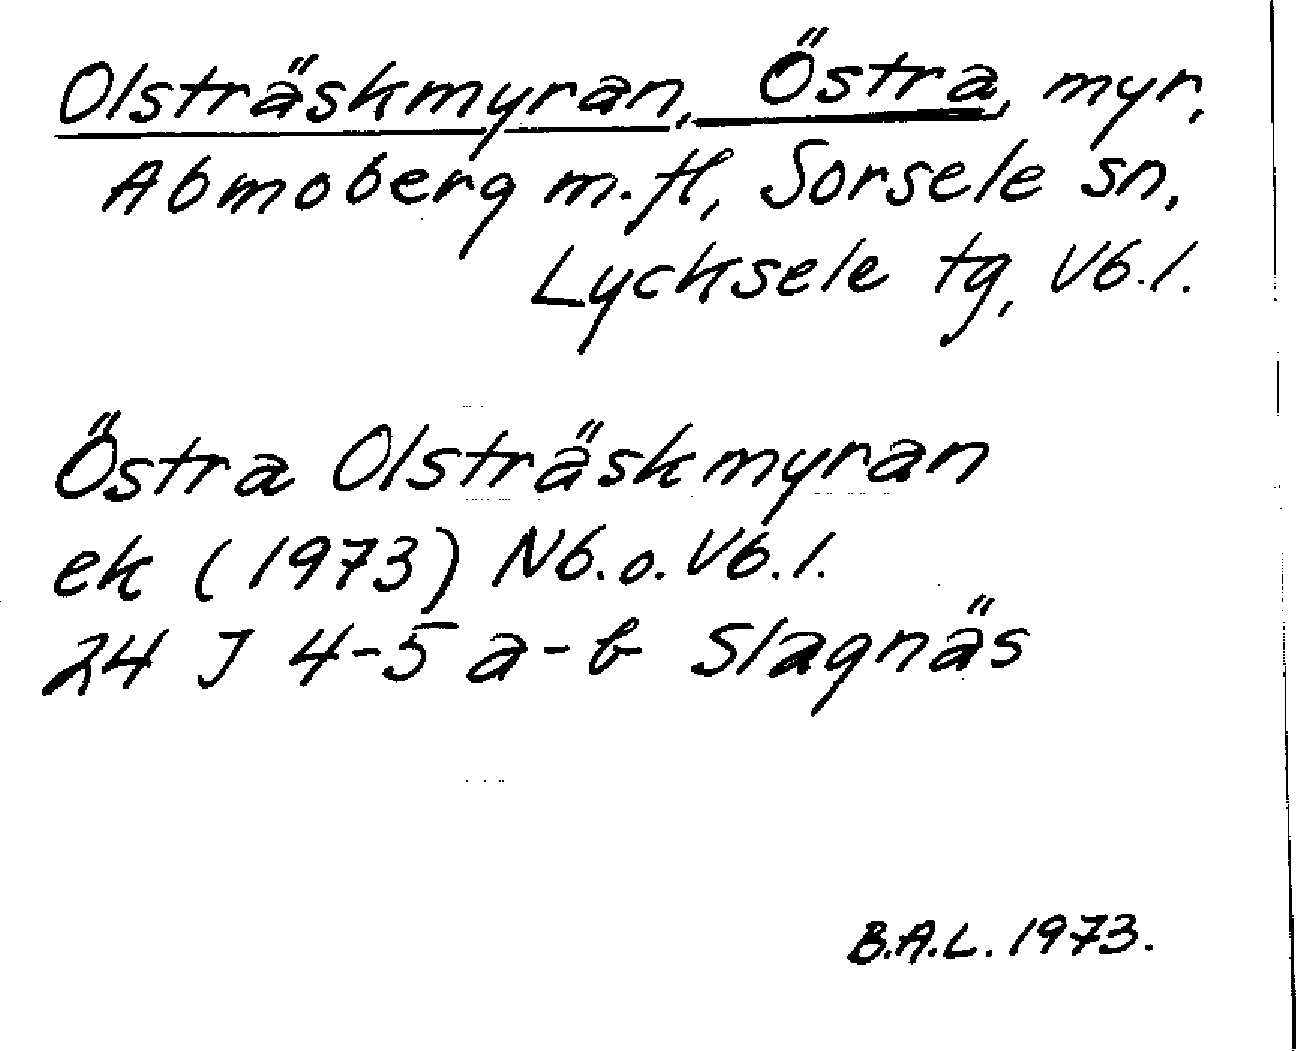 Olsträskmyran, Östra, myr,
Abmoberg m.fl, Sorsele sn,
Lycksele tg, Vb.l.
Östra Olsträskmyran
ek (1973) Nb.o.Vb.l.
24 J 4-5 a-b Slagnäs
B.A.L. 1973.